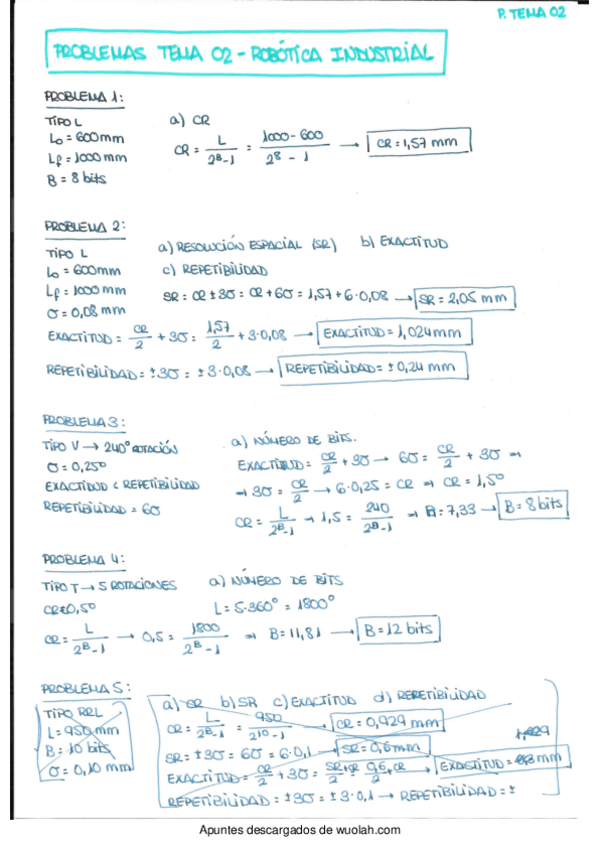 P. TEMA 02
PROBLEMAS TEMA 02 - ROBÓTICA INDUSTRIAL
PROBLEMA 1:
TIPO L
L₀ = 600mm
Lf = 1000 mm
B = 8 bits
a) CR
CR = L / 2^B-1 = 1000-600 / 2^8 - 1 → CR = 1,57 mm
PROBLEMA 2:
TIPO L
L₀ = 600mm
Lf = 1000 mm
σ = 0,08 mm
a) RESOLUCIÓN ESPACIAL (SR) b) EXACTITUD
c) REPETIBILIDAD
SR = CR ± 3σ = CR + 6σ = 1,57 + 6·0,08 → SR = 2,05 mm
EXACTITUD = CR/2 + 3σ = 1,57/2 + 3·0,08 → EXACTITUD = 1,024mm
REPETIBILIDAD = ±3σ = ±3·0,08 → REPETIBILIDAD = ±0,24 mm
PROBLEMA 3:
TIPO V → 240° ROTACIÓN
σ = 0,25°
EXACTITUD < REPETIBILIDAD
REPETIBILIDAD = 6σ
a) NÚMERO DE BITS.
EXACTITUD = CR/2 + 3σ → 6σ = CR/2 + 3σ ⇒
⇒ 3σ = CR/2 → 6·0,25 = CR ⇒ CR = 1,5°
CR = L / 2^B-1 → 1,5 = 240 / 2^B-1 ⇒ B = 7,33 → B = 8 bits
PROBLEMA 4:
TIPO T → 5 ROTACIONES
CR = 0,5°
a) NÚMERO DE BITS
L = 5·360° = 1800°
CR = L / 2^B-1 → 0,5 = 1800 / 2^B-1 ⇒ B = 11,81 → B = 12 bits
PROBLEMA 5:
TIPO RRL
L = 950 mm
B = 10 bits
σ = 0,10 mm
a) CR b) SR c) EXACTITUD d) REPETIBILIDAD
CR = L / 2^B-1 = 950 / 2^10-1 → CR = 0,929 mm
SR = ±3σ = 6σ = 6·0,1 → SR = 0,6mm
EXACTITUD = CR/2 + 3σ = → EXACTITUD = mm
REPETIBILIDAD = ±3σ = ±3·0,1 → REPETIBILIDAD = ±
Apuntes descargados de wuolah.com